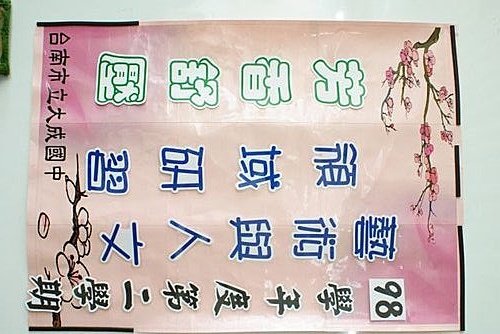 98學年度第二學期
藝術與人文
領域研習
芳香舒壓
台南市立大成國中